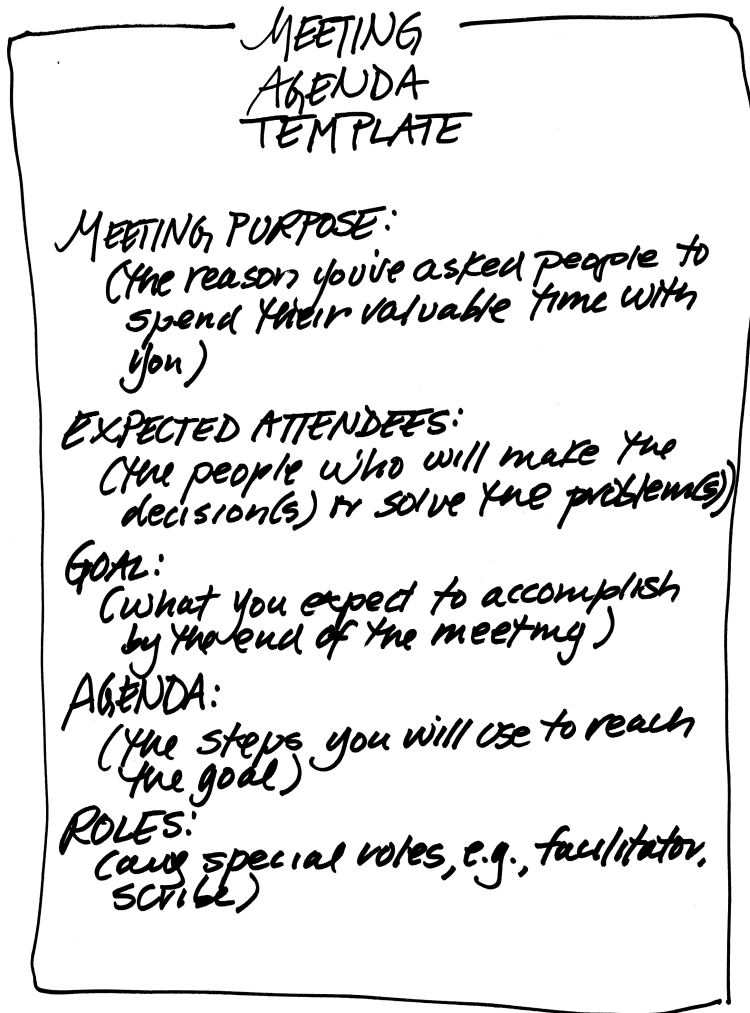 MEETING
AGENDA
TEMPLATE
MEETING PURPOSE:
(the reason you've asked people to
spend their valuable time with
you)
EXPECTED ATTENDEES:
(the people who will make the
decision(s) or solve the problem(s))
GOAL:
(what you expect to accomplish
by the end of the meeting)
AGENDA:
(the steps you will use to reach
the goal)
ROLES:
(any special roles, e.g., facilitator,
scribe)